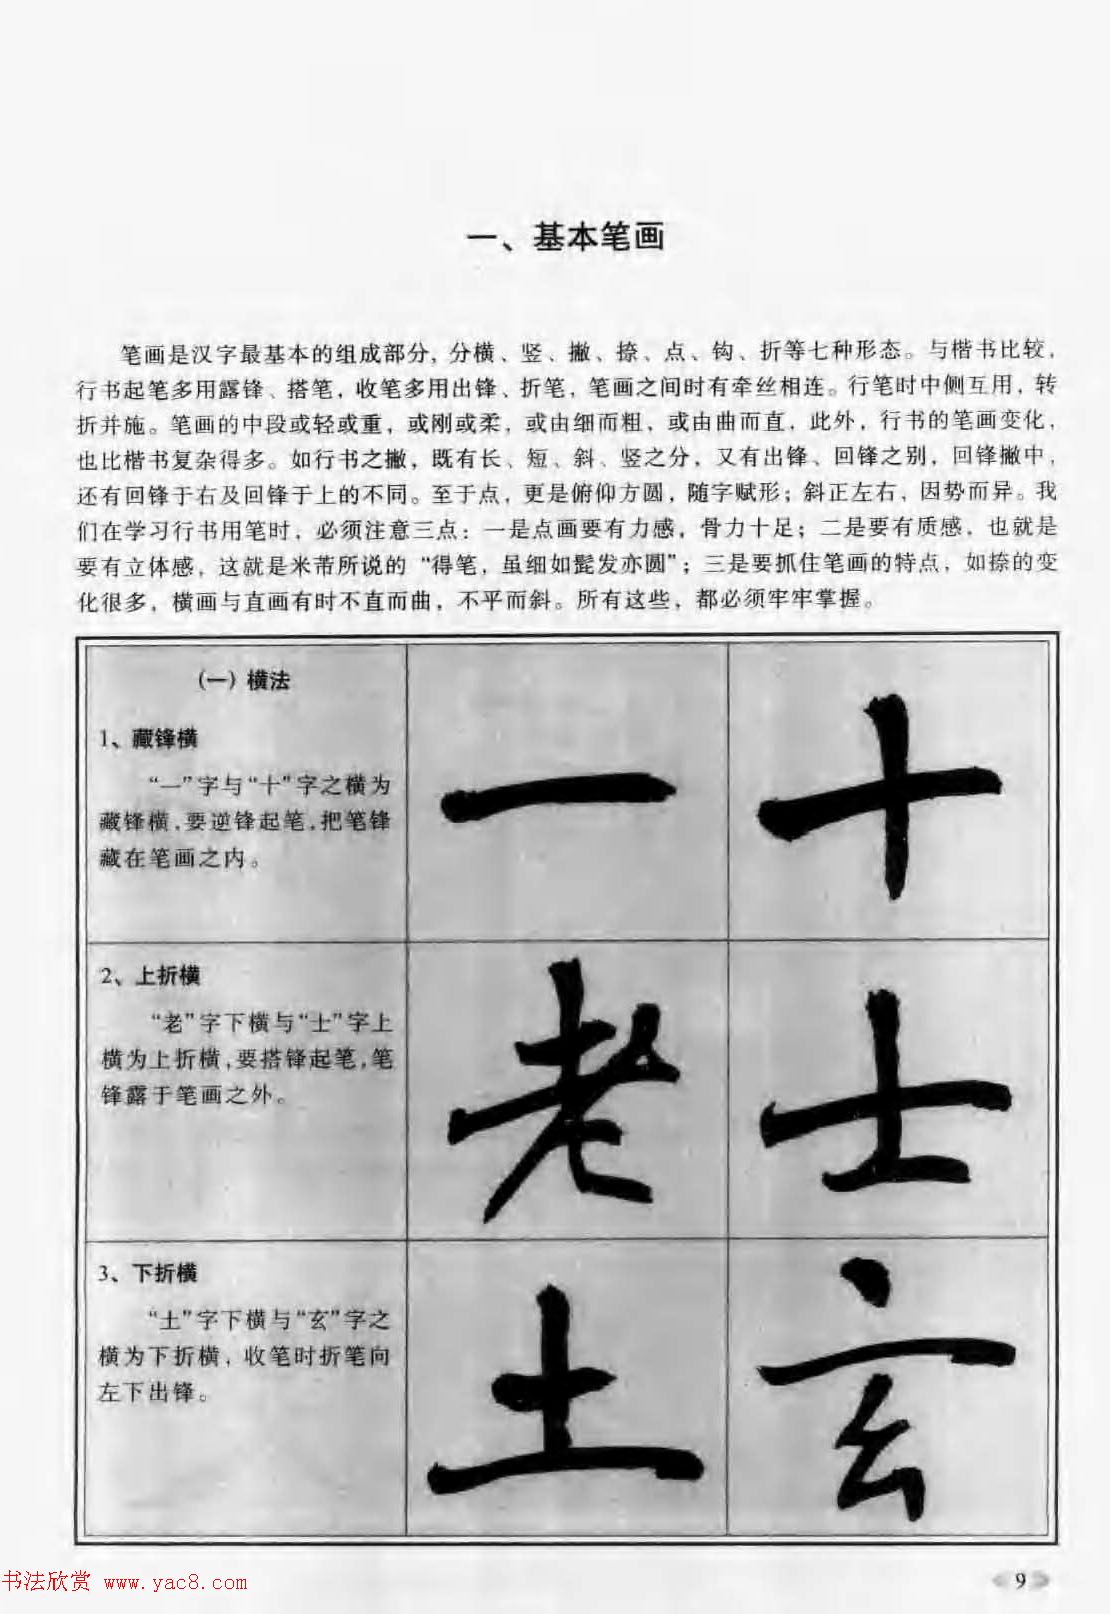 一、基本笔画
笔画是汉字最基本的组成部分，分横、竖、撇、捺、点、钩、折等七种形态。与楷书比较，
行书起笔多用露锋、搭笔，收笔多用出锋、折笔，笔画之间时有牵丝相连。行笔时中侧互用，转
折并施。笔画的中段或轻或重，或刚或柔，或由细而粗，或由曲而直，此外，行书的笔画变化，
也比楷书复杂得多。如行书之撇，既有长、短、斜、竖之分，又有出锋、回锋之别，回锋撇中，
还有回锋于右及回锋于上的不同。至于点，更是俯仰方圆，随字赋形；斜正左右，因势而异。我
们在学习行书用笔时，必须注意三点：一是点画要有力感，骨力十足；二是要有质感，也就是
要有立体感，这就是米芾所说的“得笔，虽细如髭发亦圆”；三是要抓住笔画的特点，如捺的变
化很多，横画与直画有时不直而曲，不平而斜。所有这些，都必须牢牢掌握。
（一）横法
1、藏锋横
“一”字与“十”字之横为
藏锋横，要逆锋起笔，把笔锋
藏在笔画之内。
一 十
2、上折横
“老”字下横与“士”字上
横为上折横，要搭锋起笔，笔
锋露于笔画之外。
老 士
3、下折横
“土”字下横与“玄”字之
横为下折横，收笔时折笔向
左下出锋。
土 玄
书法欣赏 www.yac8.com
9